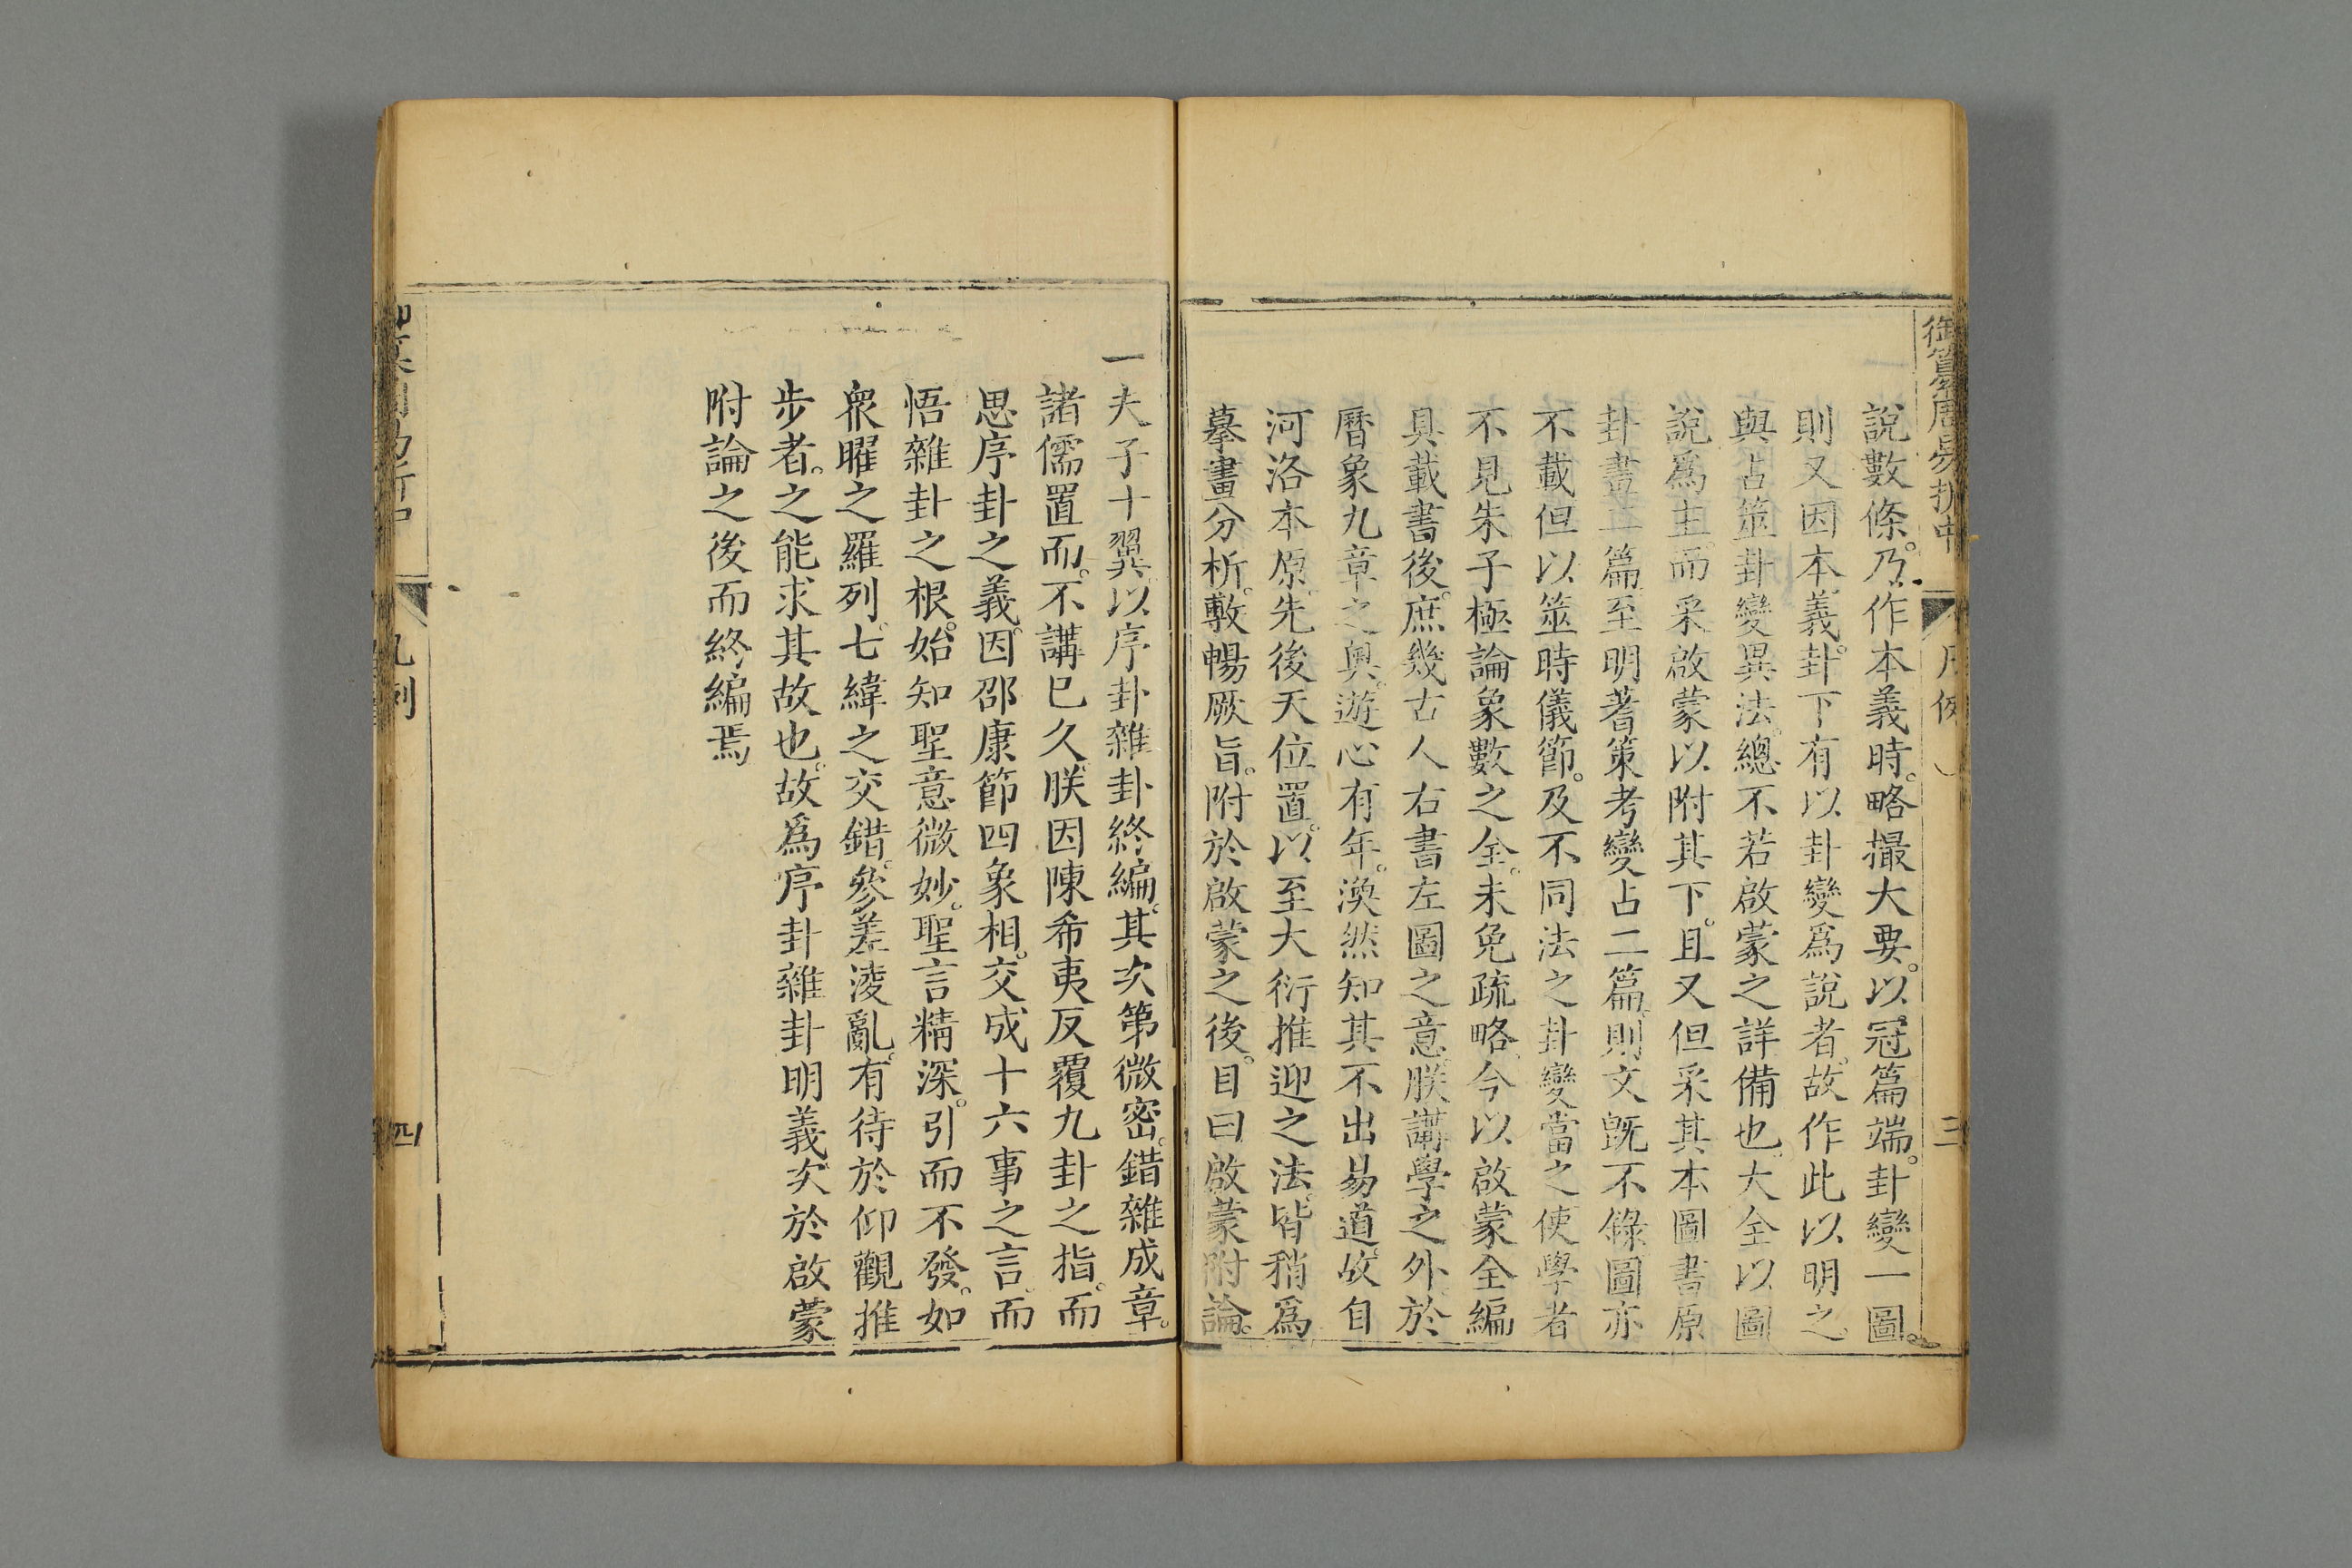 御纂周易折中
凡例
三
說數條。乃作本義時。略撮大要。以冠篇端。卦變一圖。
則又因本義卦下有以卦變爲說者。故作此以明之。
與占筮卦變異法。總不若啟蒙之詳備也。大全以圖
說爲主。而采啟蒙以附其下。且又但采其本圖書原
卦畫二篇。至明蓍策考變占二篇。則文旣不錄。圖亦
不載。但以筮時儀節。及不同法之卦變當之。使學者
不見朱子極論象數之全。未免疏略。今以啟蒙全編
具載書後。庶幾古人右書左圖之意。朕講學之外。於
曆象九章之奧。遊心有年。渙然知其不出易道。故自
河洛本原。先後天位置。以至大衍推迎之法。皆稍爲
摹畫分析。敷暢厥旨。附於啟蒙之後。目曰啟蒙附論。
一夫子十翼。以序卦雜卦終編。其次第微密。錯雜成章。
諸儒置而。不講已久。朕因陳希夷反覆九卦之指。而
思序卦之義。因邵康節四象相。交成十六事之言。而
悟雜卦之根。始知聖意微妙。聖言精深。引而不發。如
衆曜之羅列。七緯之交錯。參差淩亂。有待於仰觀推
步者。之能求其故也。故爲序卦雜卦明義。次於啟蒙
附論之後而終編焉
凡例
四